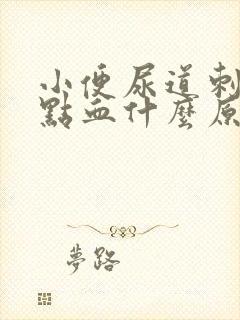 小便尿道刺
點血什麼原
夢路